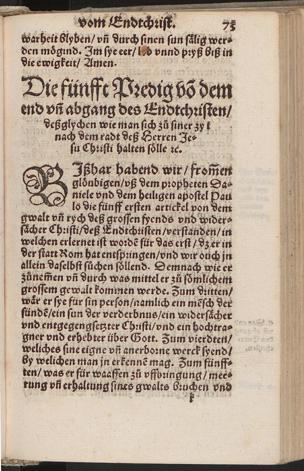 vom Endtchrist. 75
warheit blyben/ vñ durch sinen sun sälig wer-
den mögind. Im sye eer/ lob vnnd pryß biß in
die ewigkeit/ Amen.
Die fünfft Predig võ dem
end vñ abgang des Endtchristen/
deßglychen wie man sich zů siner zyt
nach dem radt deß Herren Je-
su Christi halten sölle ꝛc.
BJßhar habend wir/ frommen
glöubigen/ vß dem propheten Da-
niele vnd dem heiligen apostel Pau
lo die fünff ersten artickel von dem
gwalt vñ rych deß grossen fyends vnd wider-
sächer Christi/ deß Endtchristen/ verstanden/ in
welchen erlernet ist wordẽ für das erst/ dz er in
der statt Rom hat entspringen/ vnd wir ouch jn
allein daselbst sůchen söllend. Demnach wie er
zůnemẽ vñ durch was mittel er zů sömlichem
grossem gewalt kommen werde. Zum dritten/
wär er sye für sin person/ namlich ein mẽsch der
sünde/ ein sun der verderbnus/ ein widersächer
vnd entgegengesetzter Christi/ vnd ein hochtra-
gner vnd erhebter über Gott. Zum vierdten/
weliches sine eigne vñ anerborne werck syend/
by welichen man jn erkennẽ mag. Zum fünff-
ten/ was er für waaffen zů vffbringung/ mee-
rung vñ erhaltung sines gwalts bruchen vnd